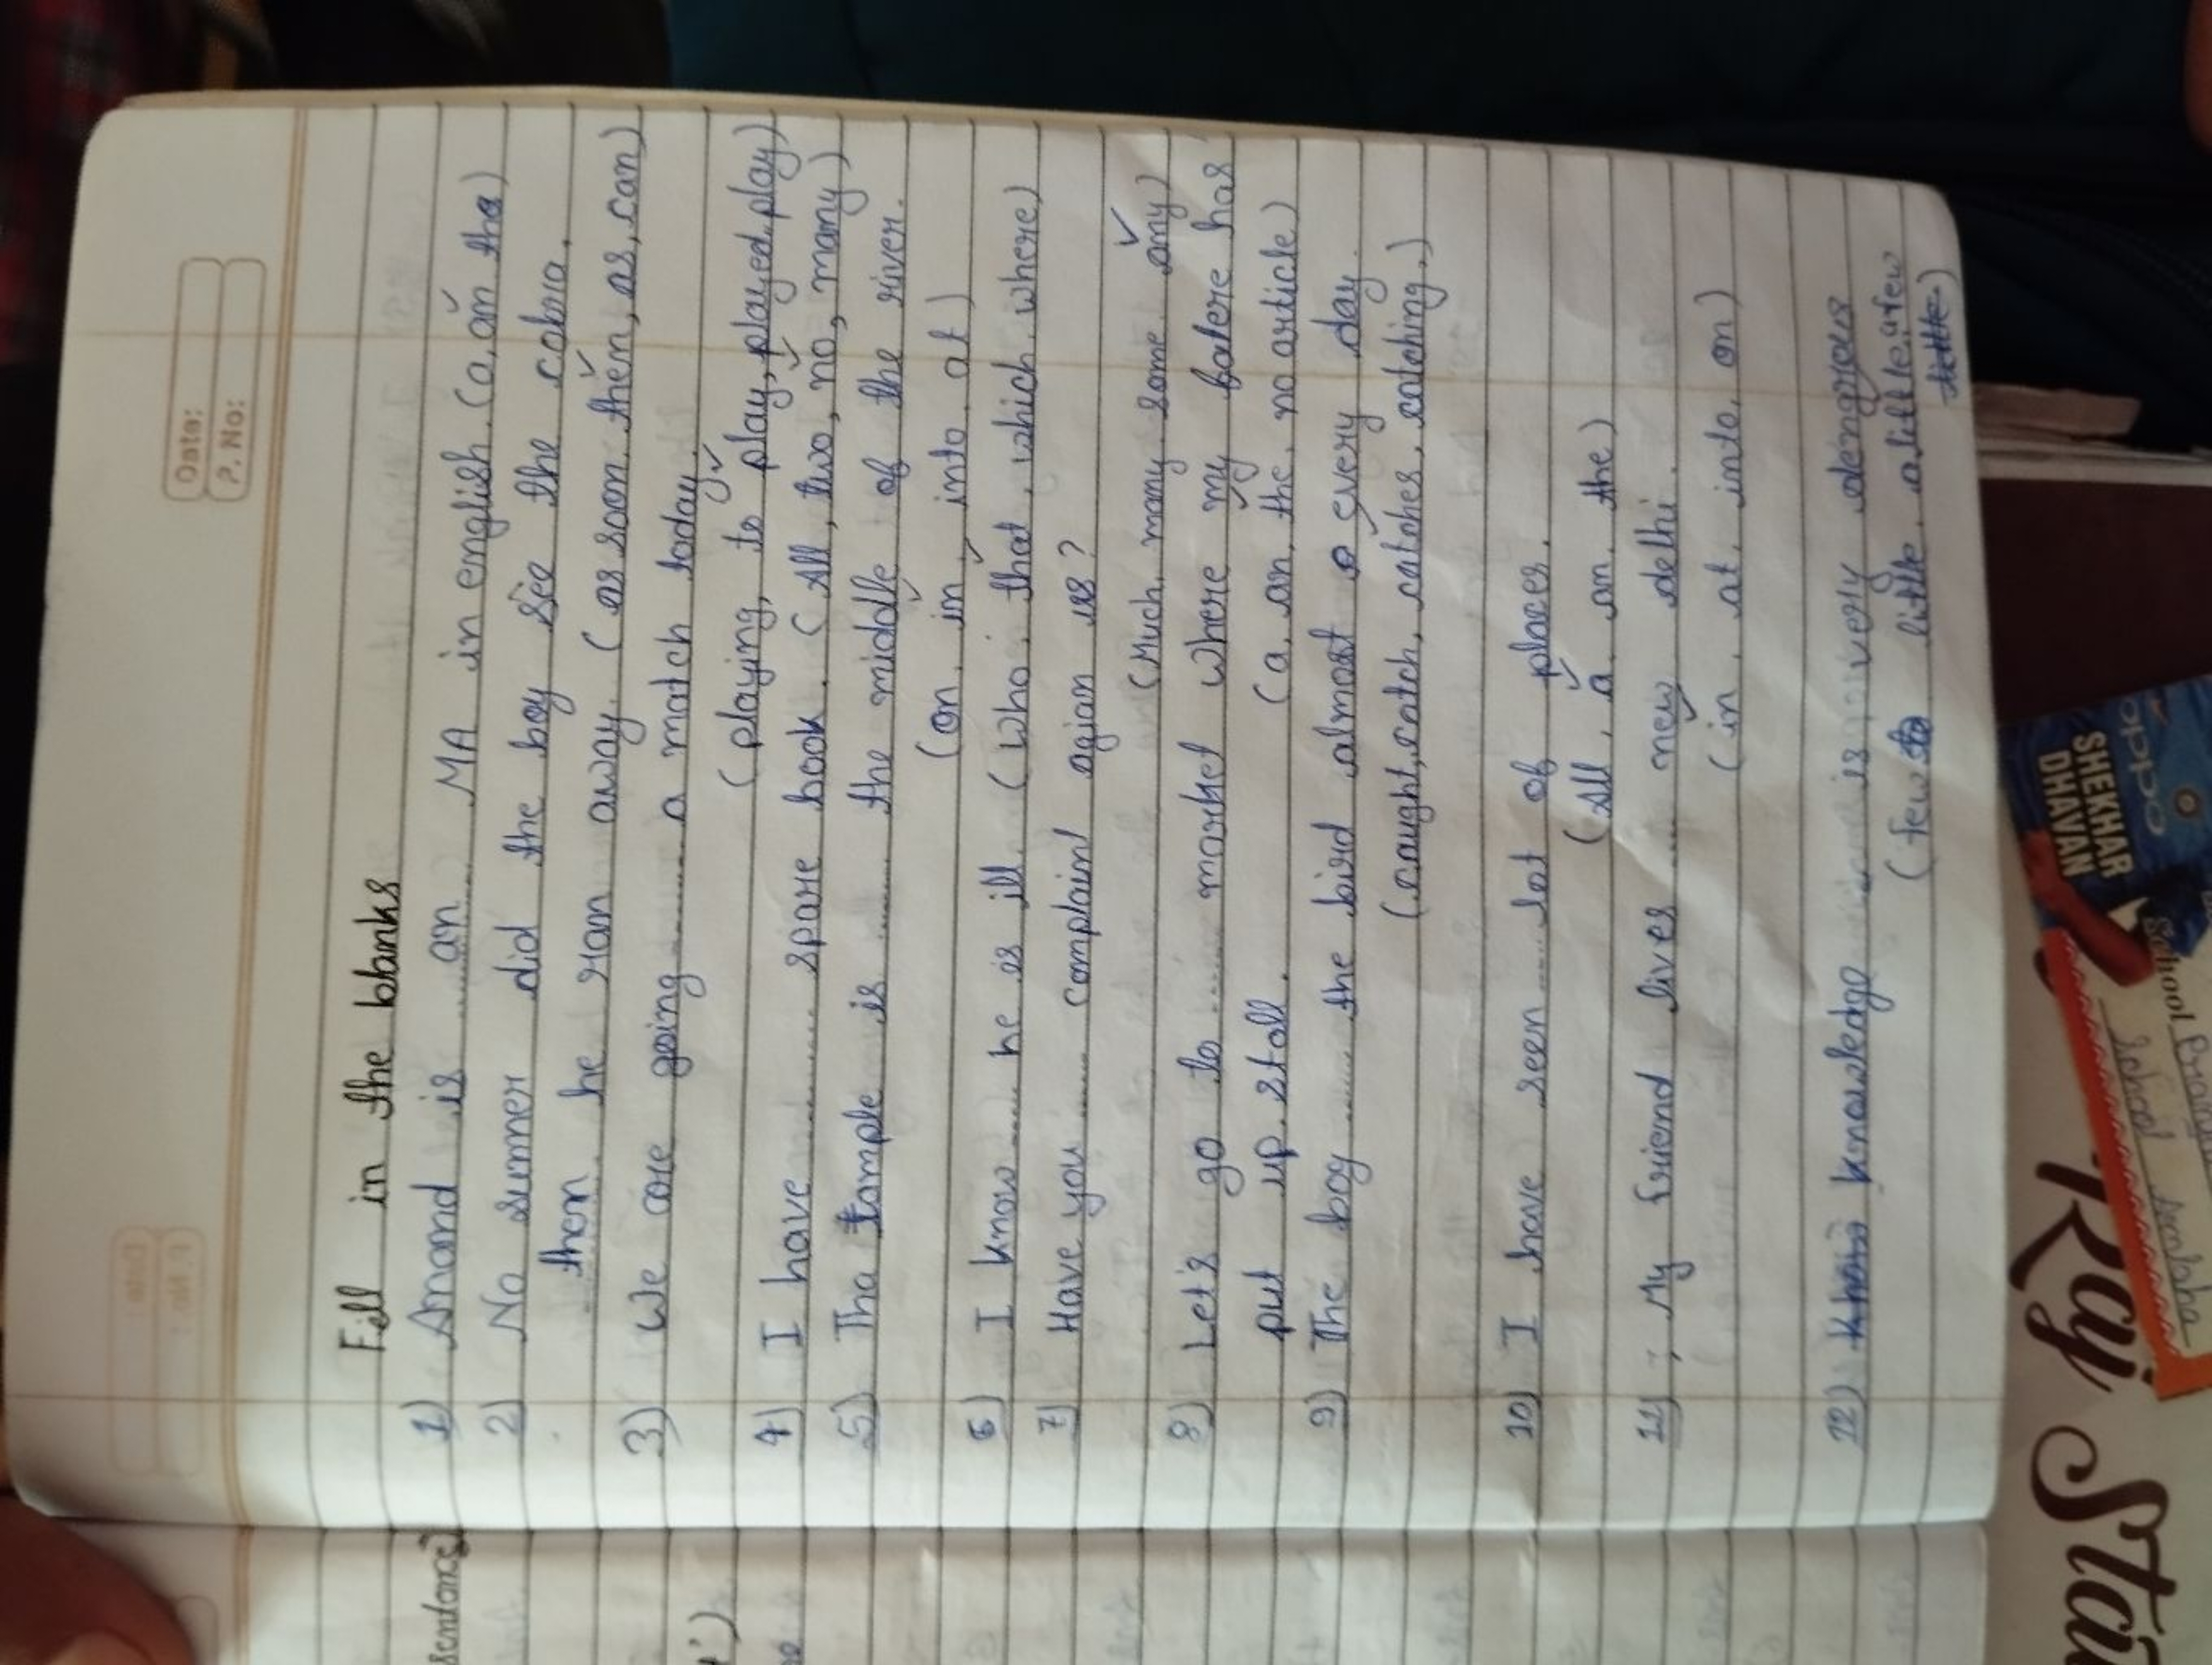 Date:
P. No:
Fill in the blanks
1) Anand is ...... an ... MA in english. (a, an the)
2) No sumner did the boy see the cobra.
then he ran away. (as soon, then, as, can)
3) We are going ...... a match today.
(playing, to play, played, play)
4) I have ...... spare book. (All, two, no, many)
5) Tha tample is ...... the middle of the river.
(on, in, into, at)
6) I know .... he is ill. (who, that, which, where)
7) Have you ..... complain agian us?
(Much, many, some, any)
8) Let's go to ...... market where my fatere has
put up stall. (a, an, the, no article)
9) The boy ...... the bird almost every day.
(caught, catch, catches, catching.)
10) I have seen ..... lot of places.
(All, a, an, the)
11) My friend lives ..... new delhi.
(in, at, into, on)
12) knowledge is very dengrous
(few little, a little, a few
little)
sentance
SHEKHAR
DHAVAN
oppo
School
School
Raj Sta